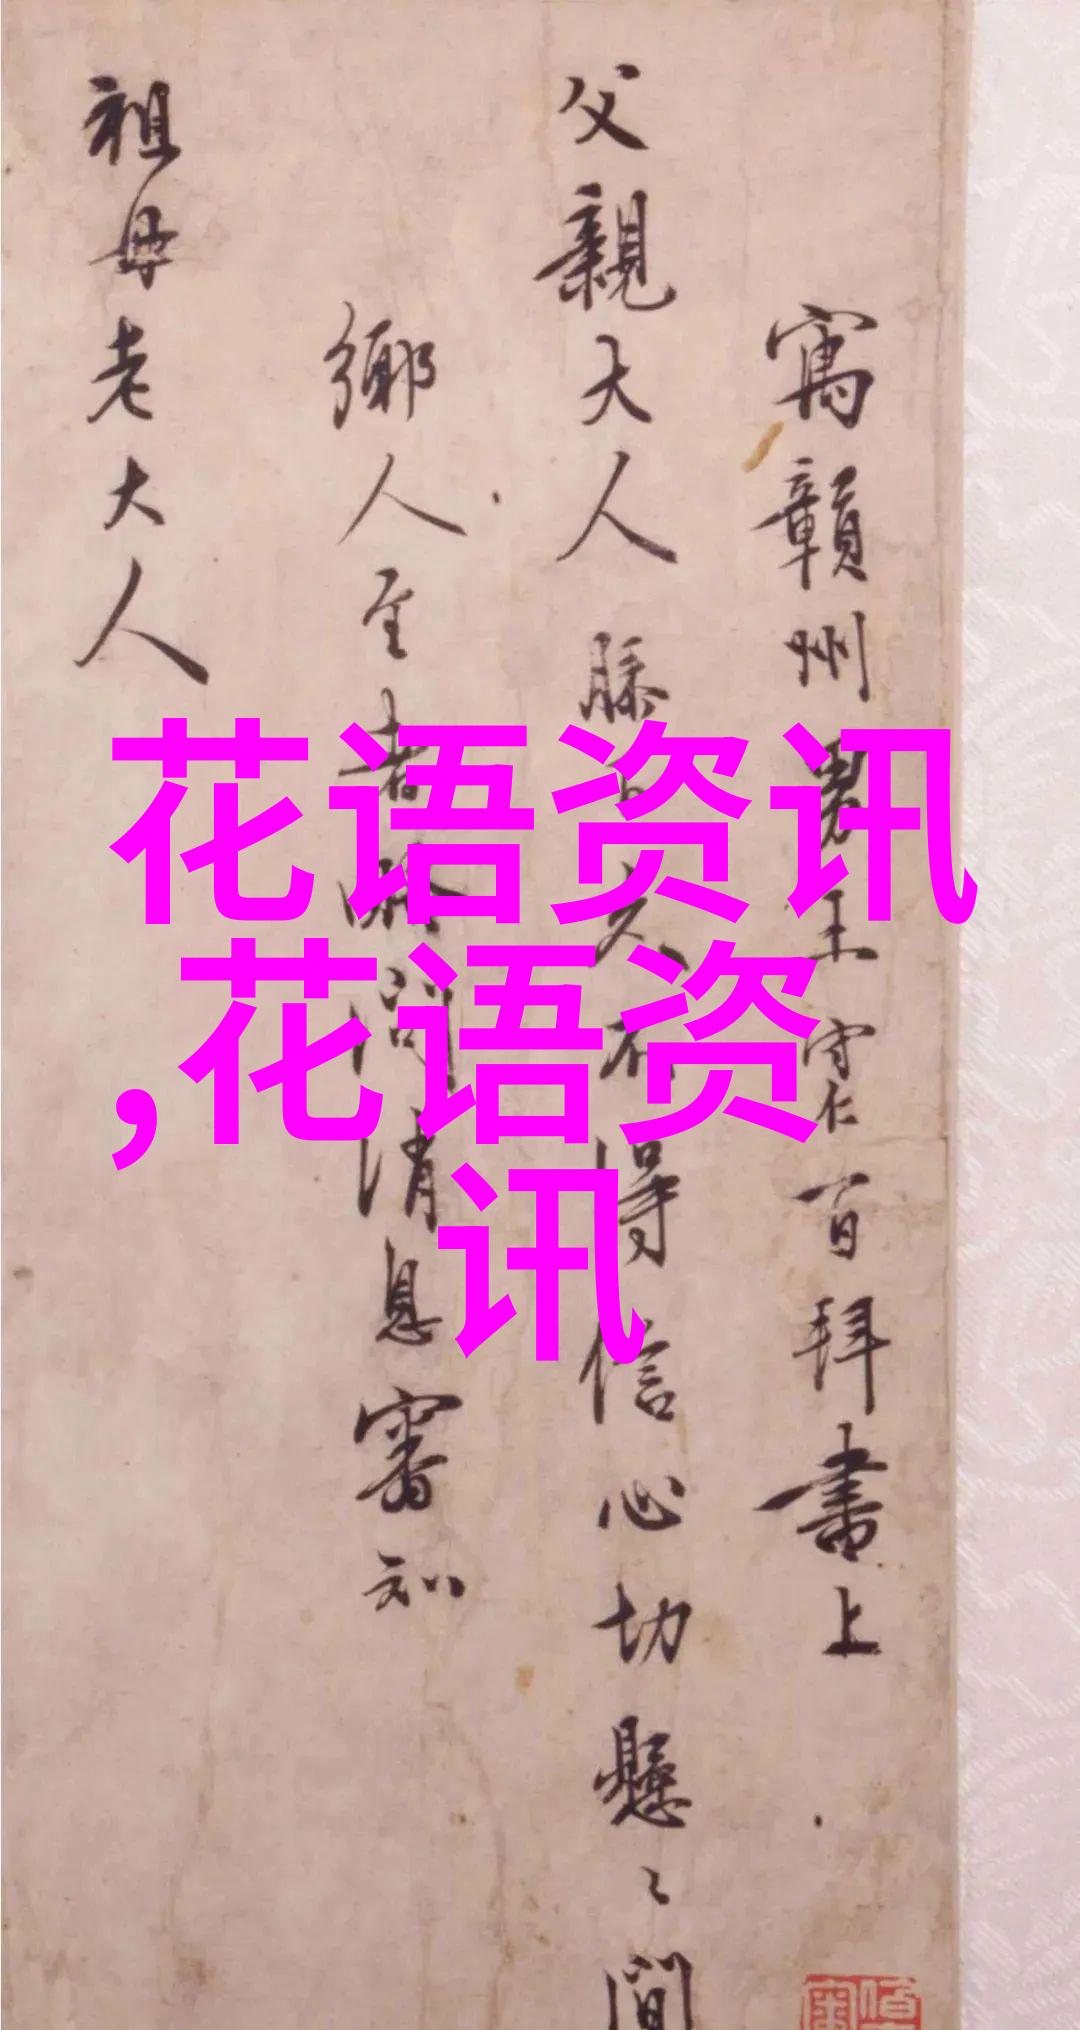 寓贛州男王守仁百拜書上
父親大人膝下久不得信心切懸〻間
鄉人至者問消息審知
祖母老大人
花语资讯
,花语资
讯